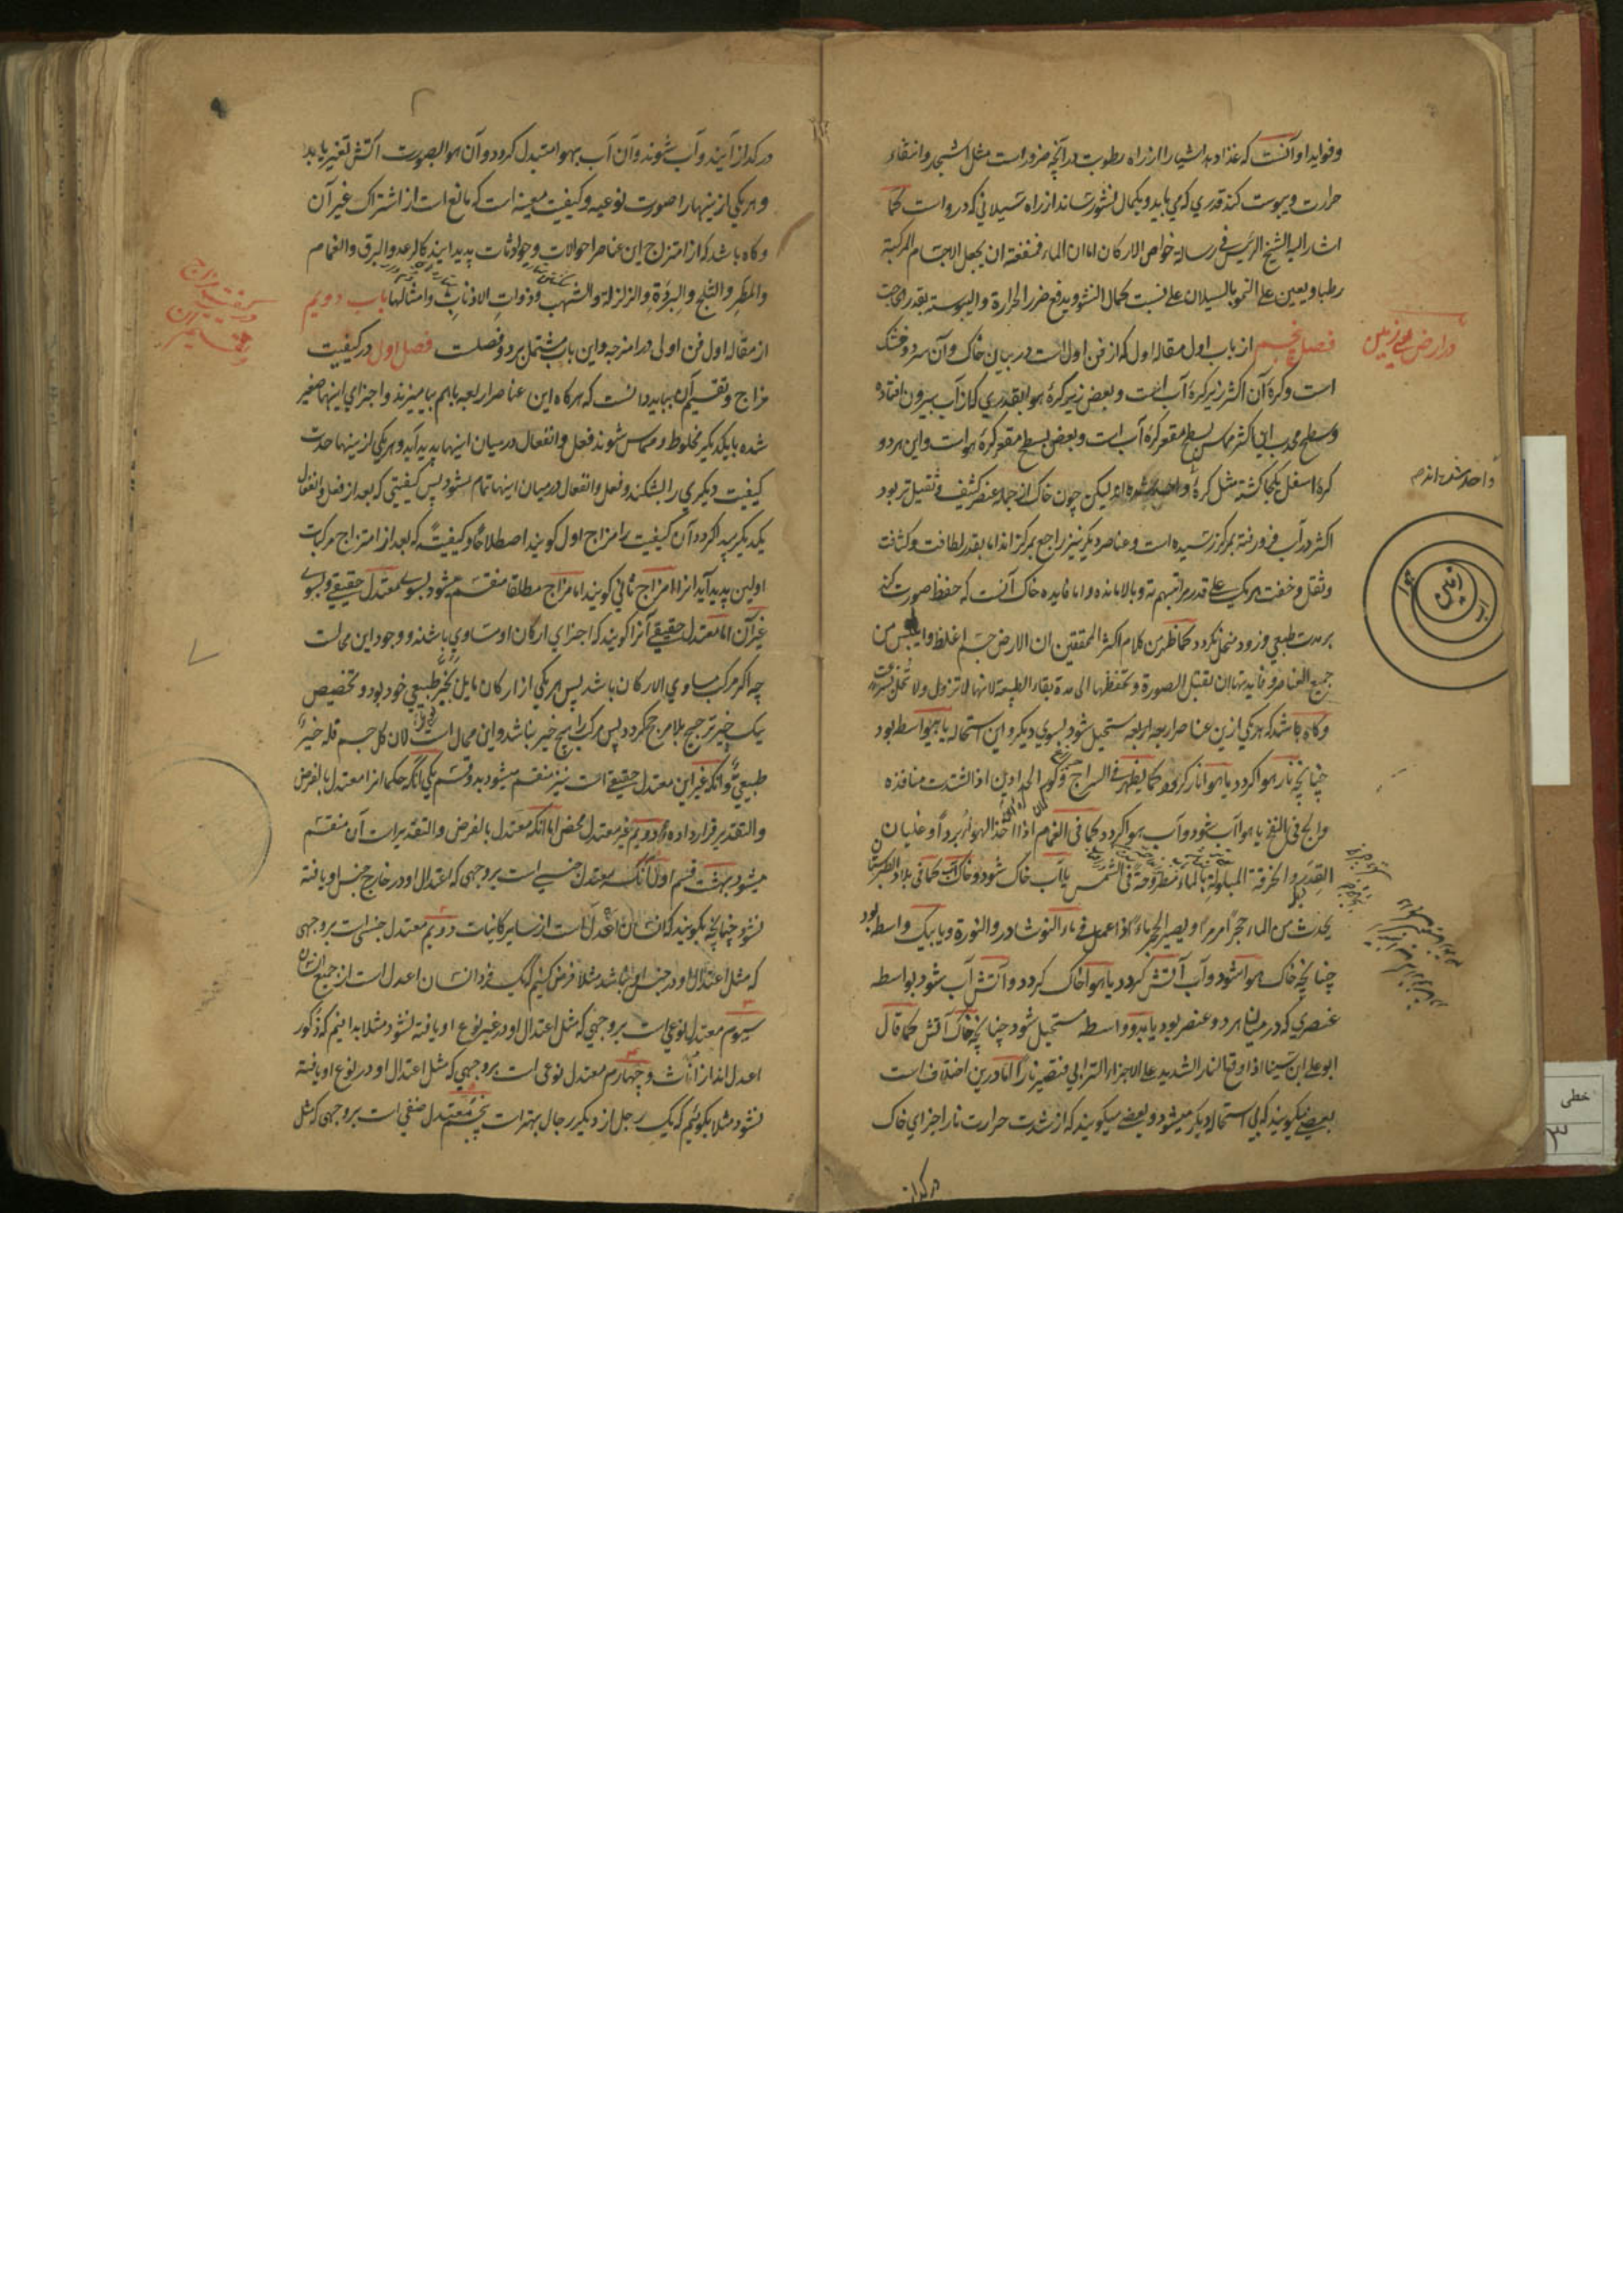 وفواید او آنست که غذا دهد اشیا را از راه رطوبت در آنچه ضرور است مثل اشجار وانتفاء
حرارت ویبوست کند قدری که می باید وبکمال نشو رساند از راه سیلانی که درو است کما
اشار الیه الشیخ الرئیس فی رسالة خواص الارکان اما ان الماء فمنفعته ان یجعل الاجسام المرکبة
رطبا ویعین علی النمو بالسیلان علی نسبت کمال النشو ویدفع ضرر الحرارة والیبوسة بقدر الحاجت
در ارض یعنی زمین
فصل پنجم از باب اول مقاله اول که از فن اول است در بیان خاک وآن سرد وخشک
است وکرهٔ آن اکثر زیر کرهٔ آب است وبعض زیر کرهٔ هوا بقدری که از آب بیرون افتاده
وسطح محدب این اکثر مماس بسطح مقعر کرهٔ آب است وبعض بسطح مقعر کرهٔ هوا است واین هر دو
کرهٔ اسفل یکجا گشته مثل کرهٔ واحد شده اند لیکن چون خاک از جمله عنصر کثیف وثقیل تر بود
واحد شده اند م
اکثر در آب فرو رفته بمرکز رسیده است وعناصر دیگر نیز راجع بمرکز اند اما بقدر لطافت وکثافت
وثقل وخفت هر یک علی قدر مراتبهم ته وبالا مانده واما فایده خاک آنست که حفظ صورت کند
ارض
هوا
بر مدت طبیعی وزود منحل نگردد کما ظهر من کلام اکثر المحققین ان الارض جسم اغلظ وایبس من
جمیع العناصر وفایدتها ان تقبل الصورة وتحفظها الی مدة بقاء الطبیعة لانها لا تزول ولا تنحل بسرعت
وگاه باشد که هر یکی ازین عناصر اربعه مستحیل شود بسوی دیگر واین استحاله یا بیواسطه بود
چنانچه نار هوا گردد یا هوا نار گردد کما یظهر فی السراج وکور الحدادین اذا اشتدت منافذه
والح فی النفخ یا هوا آب شود وآب هوا گردد کما فی الغمام اذا اخذ الهواء برداً وغلیان
القدر والخرقة المبلولة بالماء مطروحة فی الشمس یا آب خاک شود وخاک آب کما فی بلاد
یحدث من الماء حجرا مرمرا ویصیر الحجر ماءً اذا اعمل فی ماء النوشادر والنورة ویا بیک واسطه بود
چنانچه خاک هوا شود وآب آتش گردد یا هوا خاک گردد وآتش آب شود بواسطه
عنصری که در میان هر دو عنصر بود یا بدو واسطه مستحیل شود چنانچه خاک آتش کما قال
ابوعلی ابن سینا اذا وقع النار الشدید علی الاجزاء الترابی فتصیر ناراً اما درین اختلاف است
بعضی میگویند که بی استحاله دیگر میشود وبعضی میگویند که از شدت حرارت نار اجزای خاک
در گداز
در گداز آیند وآب شوند وآن آب بهوا مستبدل گردد وآن هوا بصورت آتش تغیر یابد
وهر یکی ازینها را صورت نوعیه وکیفیت معینه است که مانع است از اشتراک غیر آن
وگاه باشد که از امتزاج این عناصر احوالات وحوادثات پدید آیند کالرعد والبرق والغمام
والمطر والثلج والبرودة والزلزلة والشهب وذوات الاذناب وامثالها باب دویم
در کیفیت مزاج
وتقسیم آن
از مقاله اول فن اولی در امزجه واین باب مشتمل بر دو فصلست فصل اول در کیفیت
مزاج وتقسیم آن بباید دانست که هرگاه این عناصر اربعه باهم بیامیزند واجزای اینها صغیر
شده بایکدیگر مخلوط ومماس شوند فعل وانفعال در میان اینها پدید آید وهر یکی ازینها حدت
کیفیت دیگری را بشکند وفعل وانفعال در میان اینها تمام بشود پس کیفیتی که بعد از فعل وانفعال
یکدیگر پیدا گردد آن کیفیت را مزاج اول گویند اصطلاحا وکیفیت که بعد از امتزاج مرکبات
اولین پدید آید انرا مزاج ثانی گویند اما مزاج مطلقا منقسم میشود بسوی معتدل حقیقی وبسوی
غیر آن اما معتدل حقیقی آنرا گویند که اجزای ارکان او متساوی باشند ووجود این محالست
چه اگر مرکب مساوی الارکان باشد پس هر یکی از ارکان مایل بحیز طبیعی خود بود وتخصیص
یک حیز ترجیح بلا مرجح گردد پس مرکب را هیچ حیز نباشد واین محال است لان کل جسم فله حیز
طبیعی وآنکه غیر این معتدل حقیقی است نیز منقسم میشود بدو قسم یکی آنکه حکما انرا معتدل بالفرض
والتقدیر قرار داده دویم غیر معتدل محض اما آنکه معتدل بالفرض والتقدیر است آن منقسم
میشود بهشت قسم اول آنکه معتدل جنسی است بر وجهی که اعتدال او در خارج جنس او یافته
نشود چنانچه بگویند که انسان اعدل است از سایر کائنات دویم معتدل جنسی است بر وجهی
که مثل اعتدال او در جنس او نباشد مثلا فرض کنیم که یک فرد انسان اعدل است از جمیع انسان
سیوم معتدل نوعی است بر وجهی که مثل اعتدال او در غیر نوع او یافته نشود مثلا بدانیم که ذکور
اعدل اند از اناث وچهارم معتدل نوعی است بر وجهی که مثل اعتدال او در نوع او یافته
نشود مثلا بگوئیم که یک رجل از دیگر رجال بهتر است پنجم معتدل صنفی است بر وجهی که مثل
خطی
۳